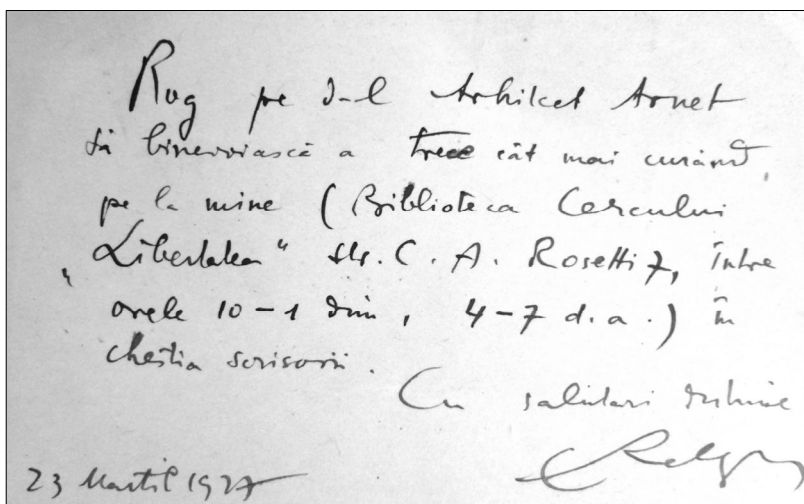 Rog pe d-l Arhitect Arnet
să binevoiască a trece cât mai curând,
pe la mine (Biblioteca Cercului
„Libertatea" Str. C. A. Rosetti 7, între
orele 10-1 dim, 4-7 d.a.) în
chestia scrisorii.
Cu salutari
23 Martie 1927